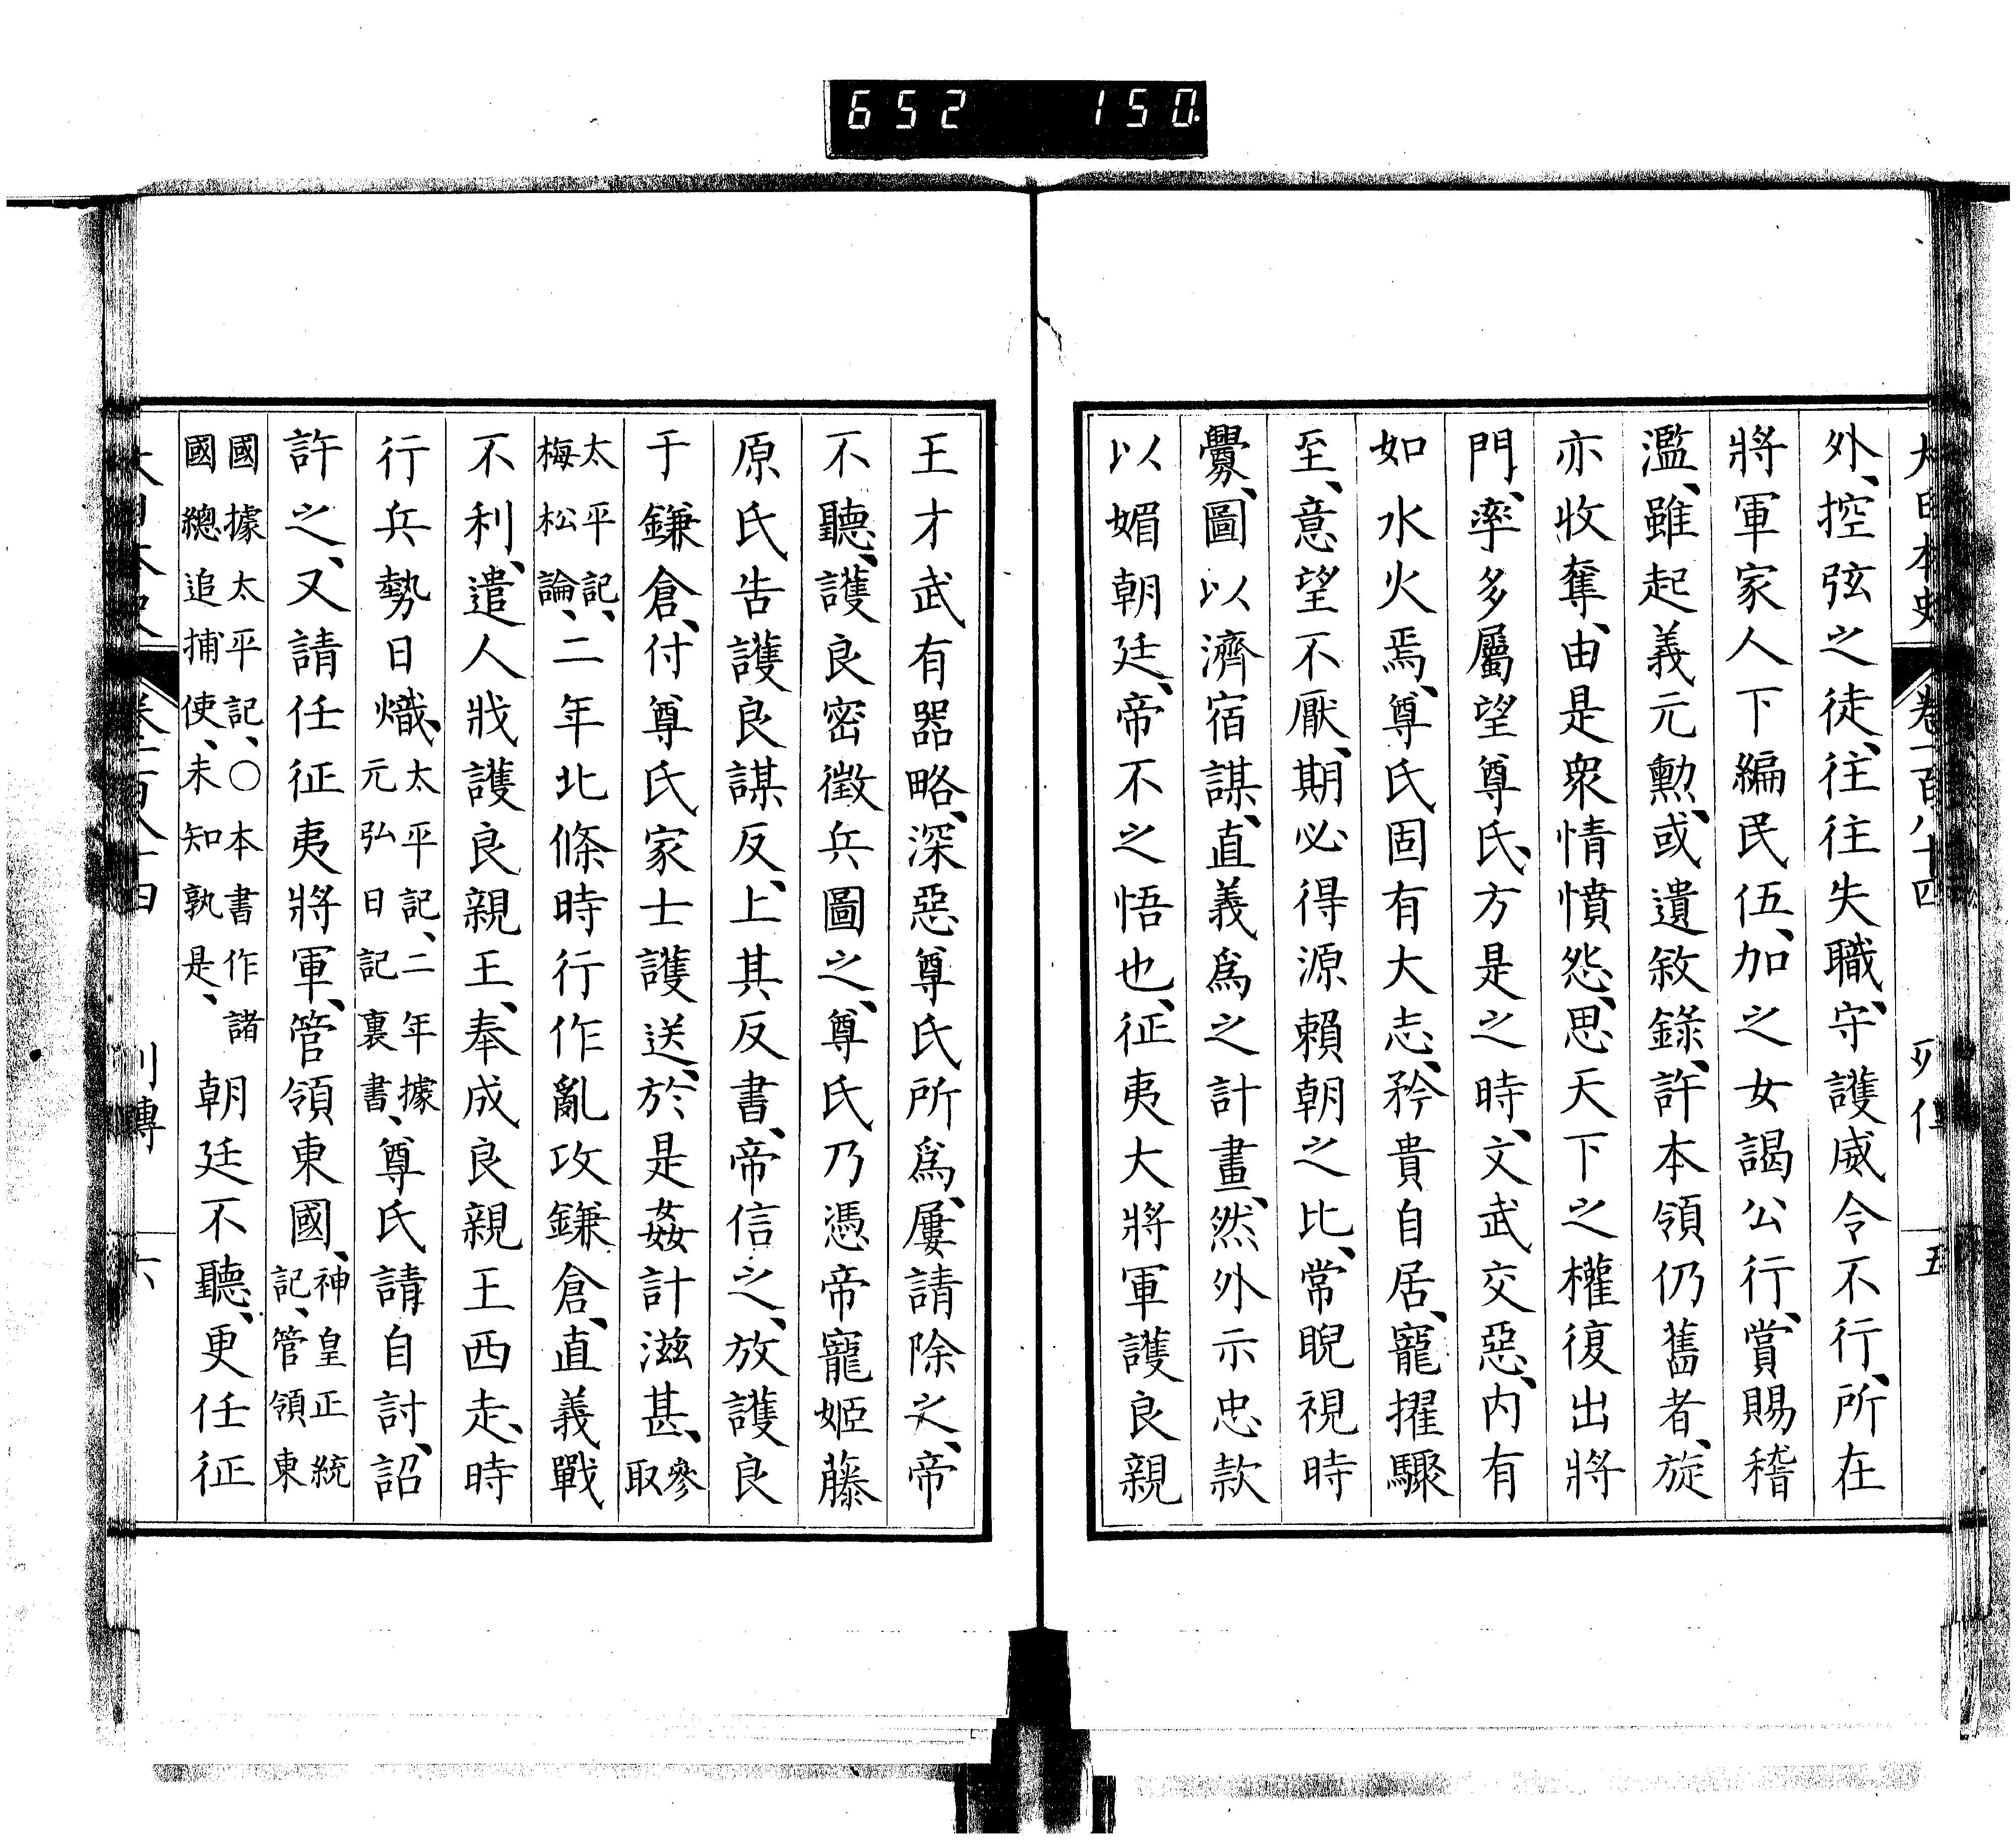 652 150
大日本史 卷一百八十四 列傳 五
外、控弦之徒、往往失職、守護威令不行、所在
將軍家人下編民伍、加之女謁公行、賞賜稽
濫、雖起義元勳、或遺敘錄、許本領仍舊者、旋
亦收奪、由是衆情憤怨、思天下之權復出將
門、率多屬望尊氏、方是之時、文武交惡、内有
如水火焉、尊氏固有大志、矜貴自居、寵擢驟
至、意望不厭、期必得源賴朝之比、常睨視時
釁、圖以濟宿謀、直義爲之計畫、然外示忠款
以媚朝廷、帝不之悟也、征夷大將軍護良親
王才武有器略、深惡尊氏所爲、屢請除之、帝
不聽、護良密徵兵圖之、尊氏乃憑帝寵姬藤
原氏告護良謀反、上其反書、帝信之、放護良
于鎌倉、付尊氏家士護送、於是姦計滋甚、參取
太平記、梅松論、二年北條時行作亂攻鎌倉、直義戰
不利、遣人戕護良親王、奉成良親王西走、時
行兵勢日熾、太平記、二年據元弘日記裏書、尊氏請自討、詔
許之、又請任征夷將軍、管領東國、神皇正統記、管領東
國據太平記、○本書作諸國總追捕使、未知孰是、朝廷不聽、更任征
大日本史 卷一百八十四 列傳 六